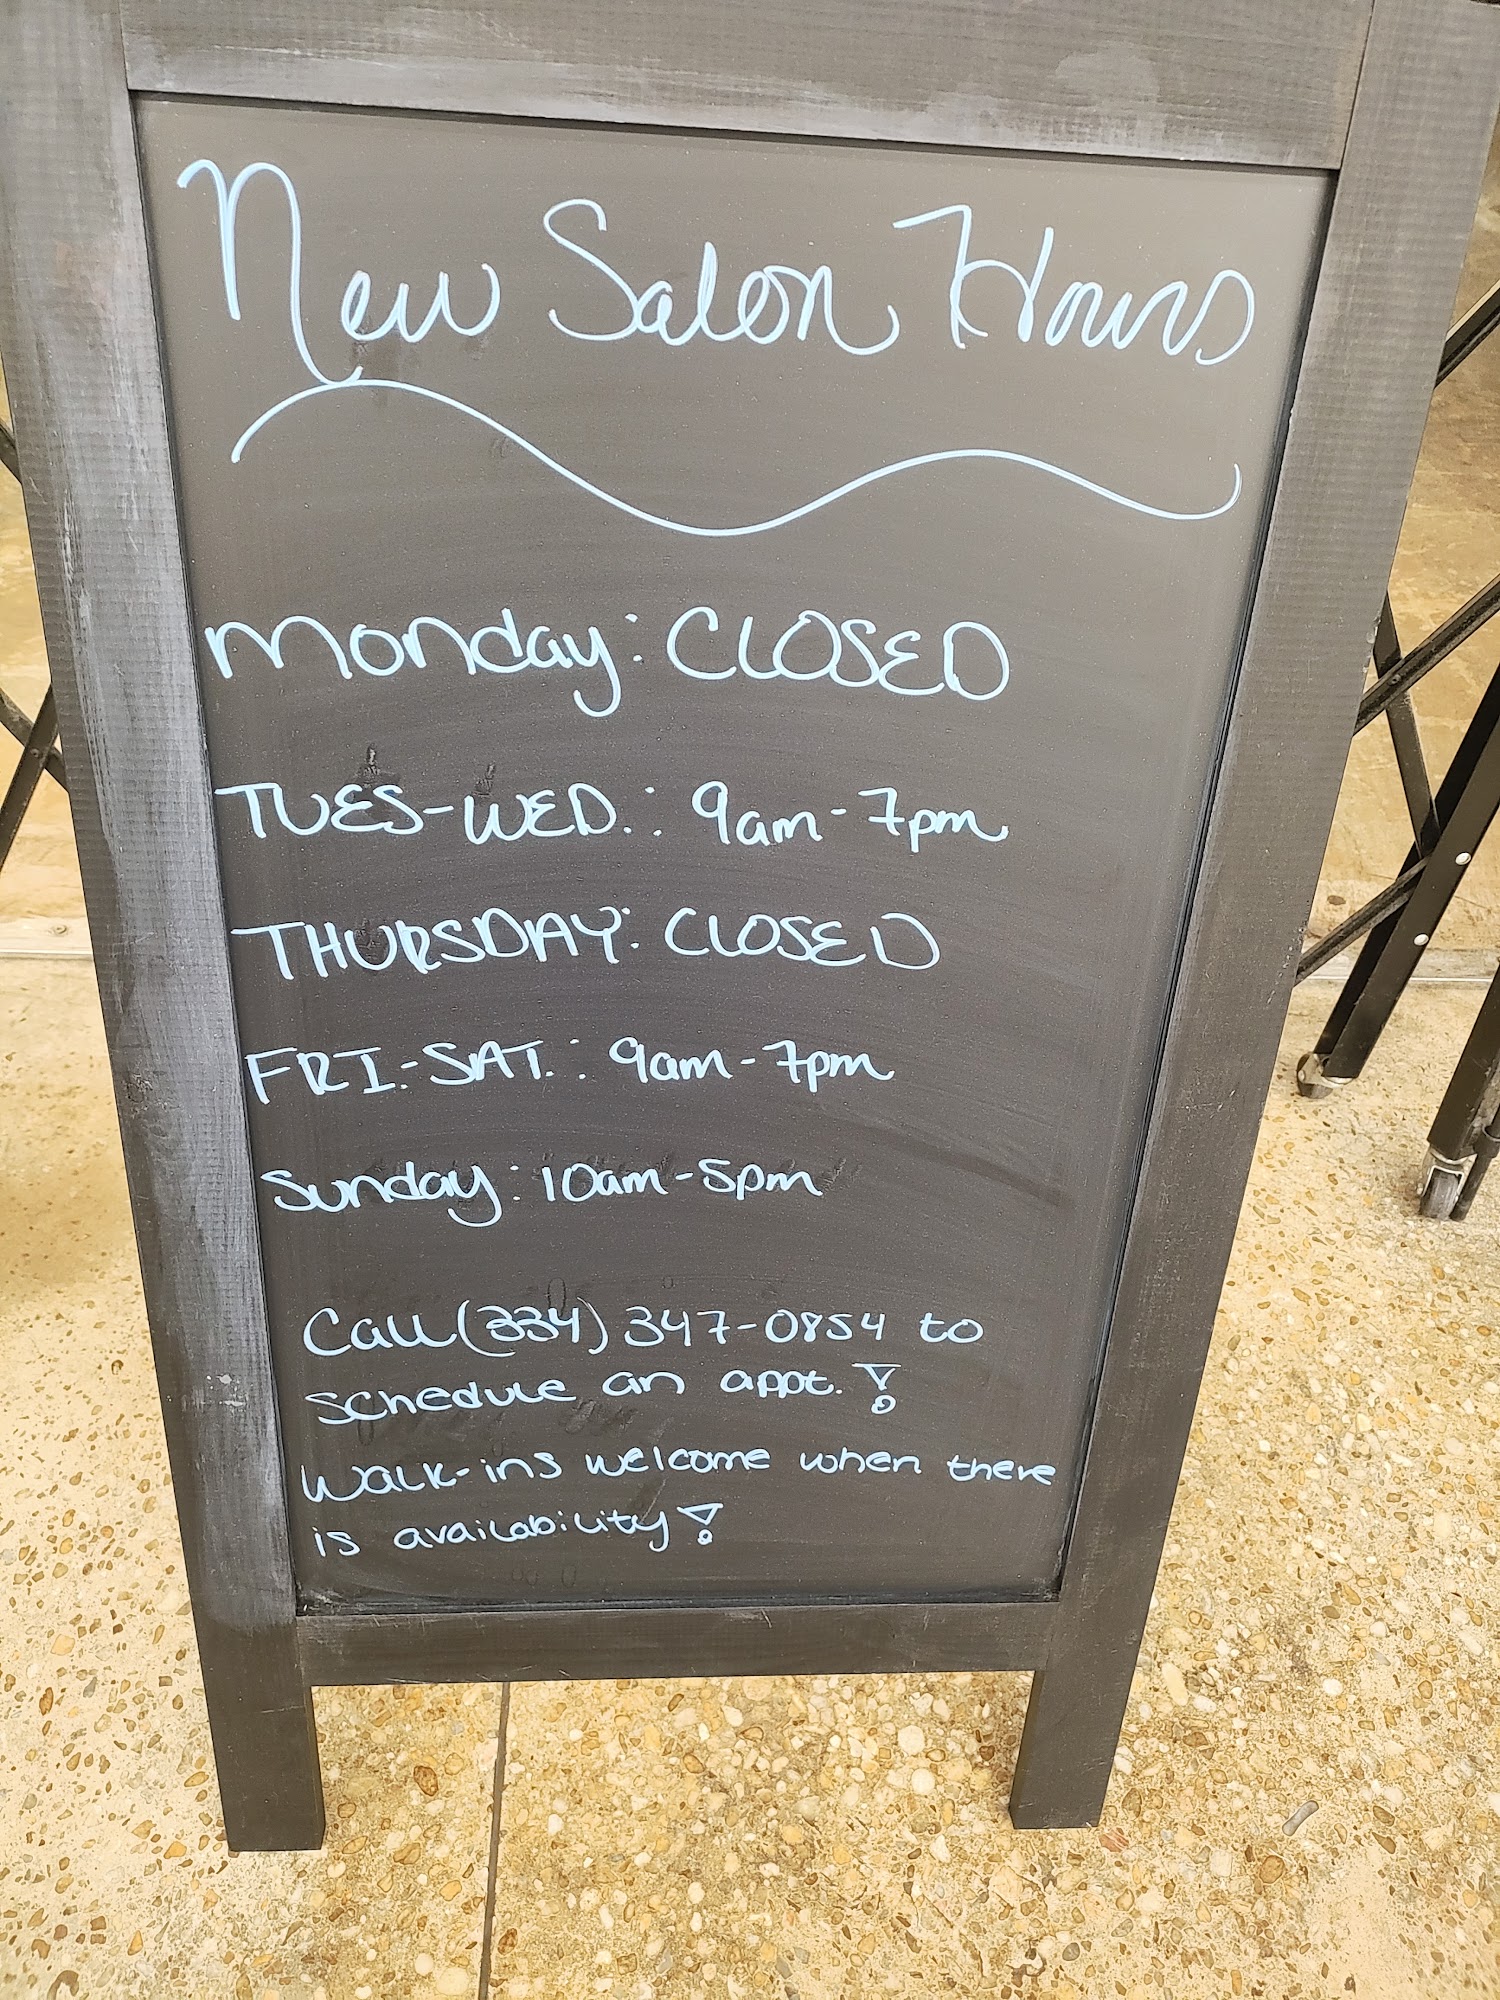 New Salon Hours
Monday: CLOSED
TUES-WED.: 9am-7pm
THURSDAY: CLOSED
FRI.-SAT.: 9am-7pm
Sunday: 10am-5pm
Call (334) 347-0854 to
schedule an appt.!
Walk-ins welcome when there
is availability!